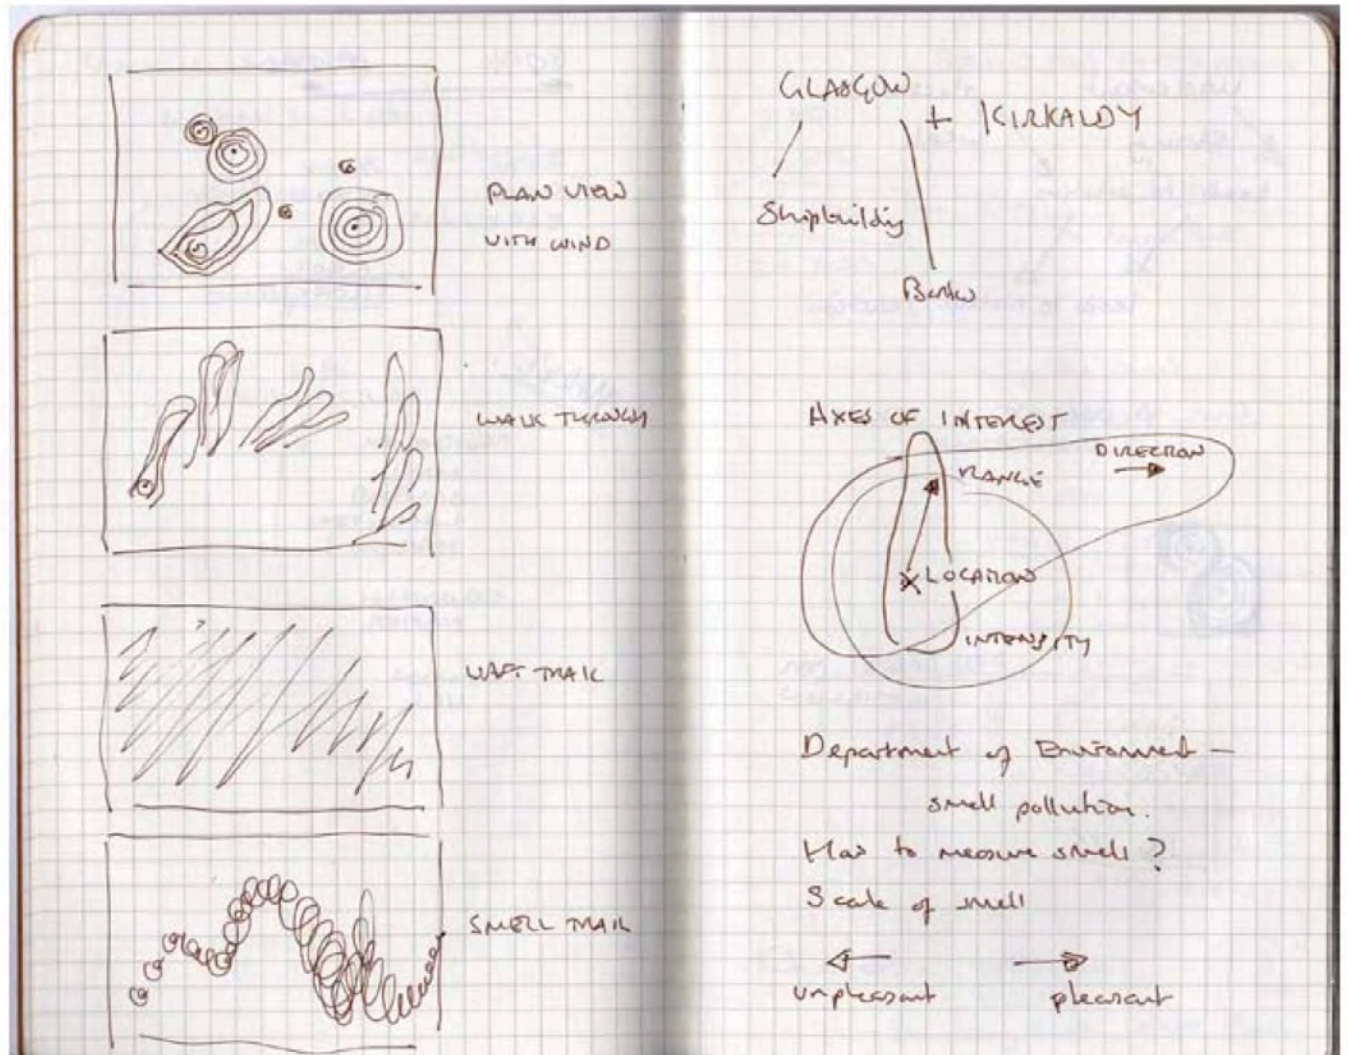 PLAN VIEW
WITH WIND
WALK THROUGH
WAFT TRAIL
SMELL TRAIL
GLASGOW
+ KIRKALDY
Shipbuilding
AXES OF INTEREST
RANGE
DIRECTION
LOCATION
INTENSITY
Department of Environment —
smell pollution.
How to measure smell?
Scale of smell
unpleasant
pleasant